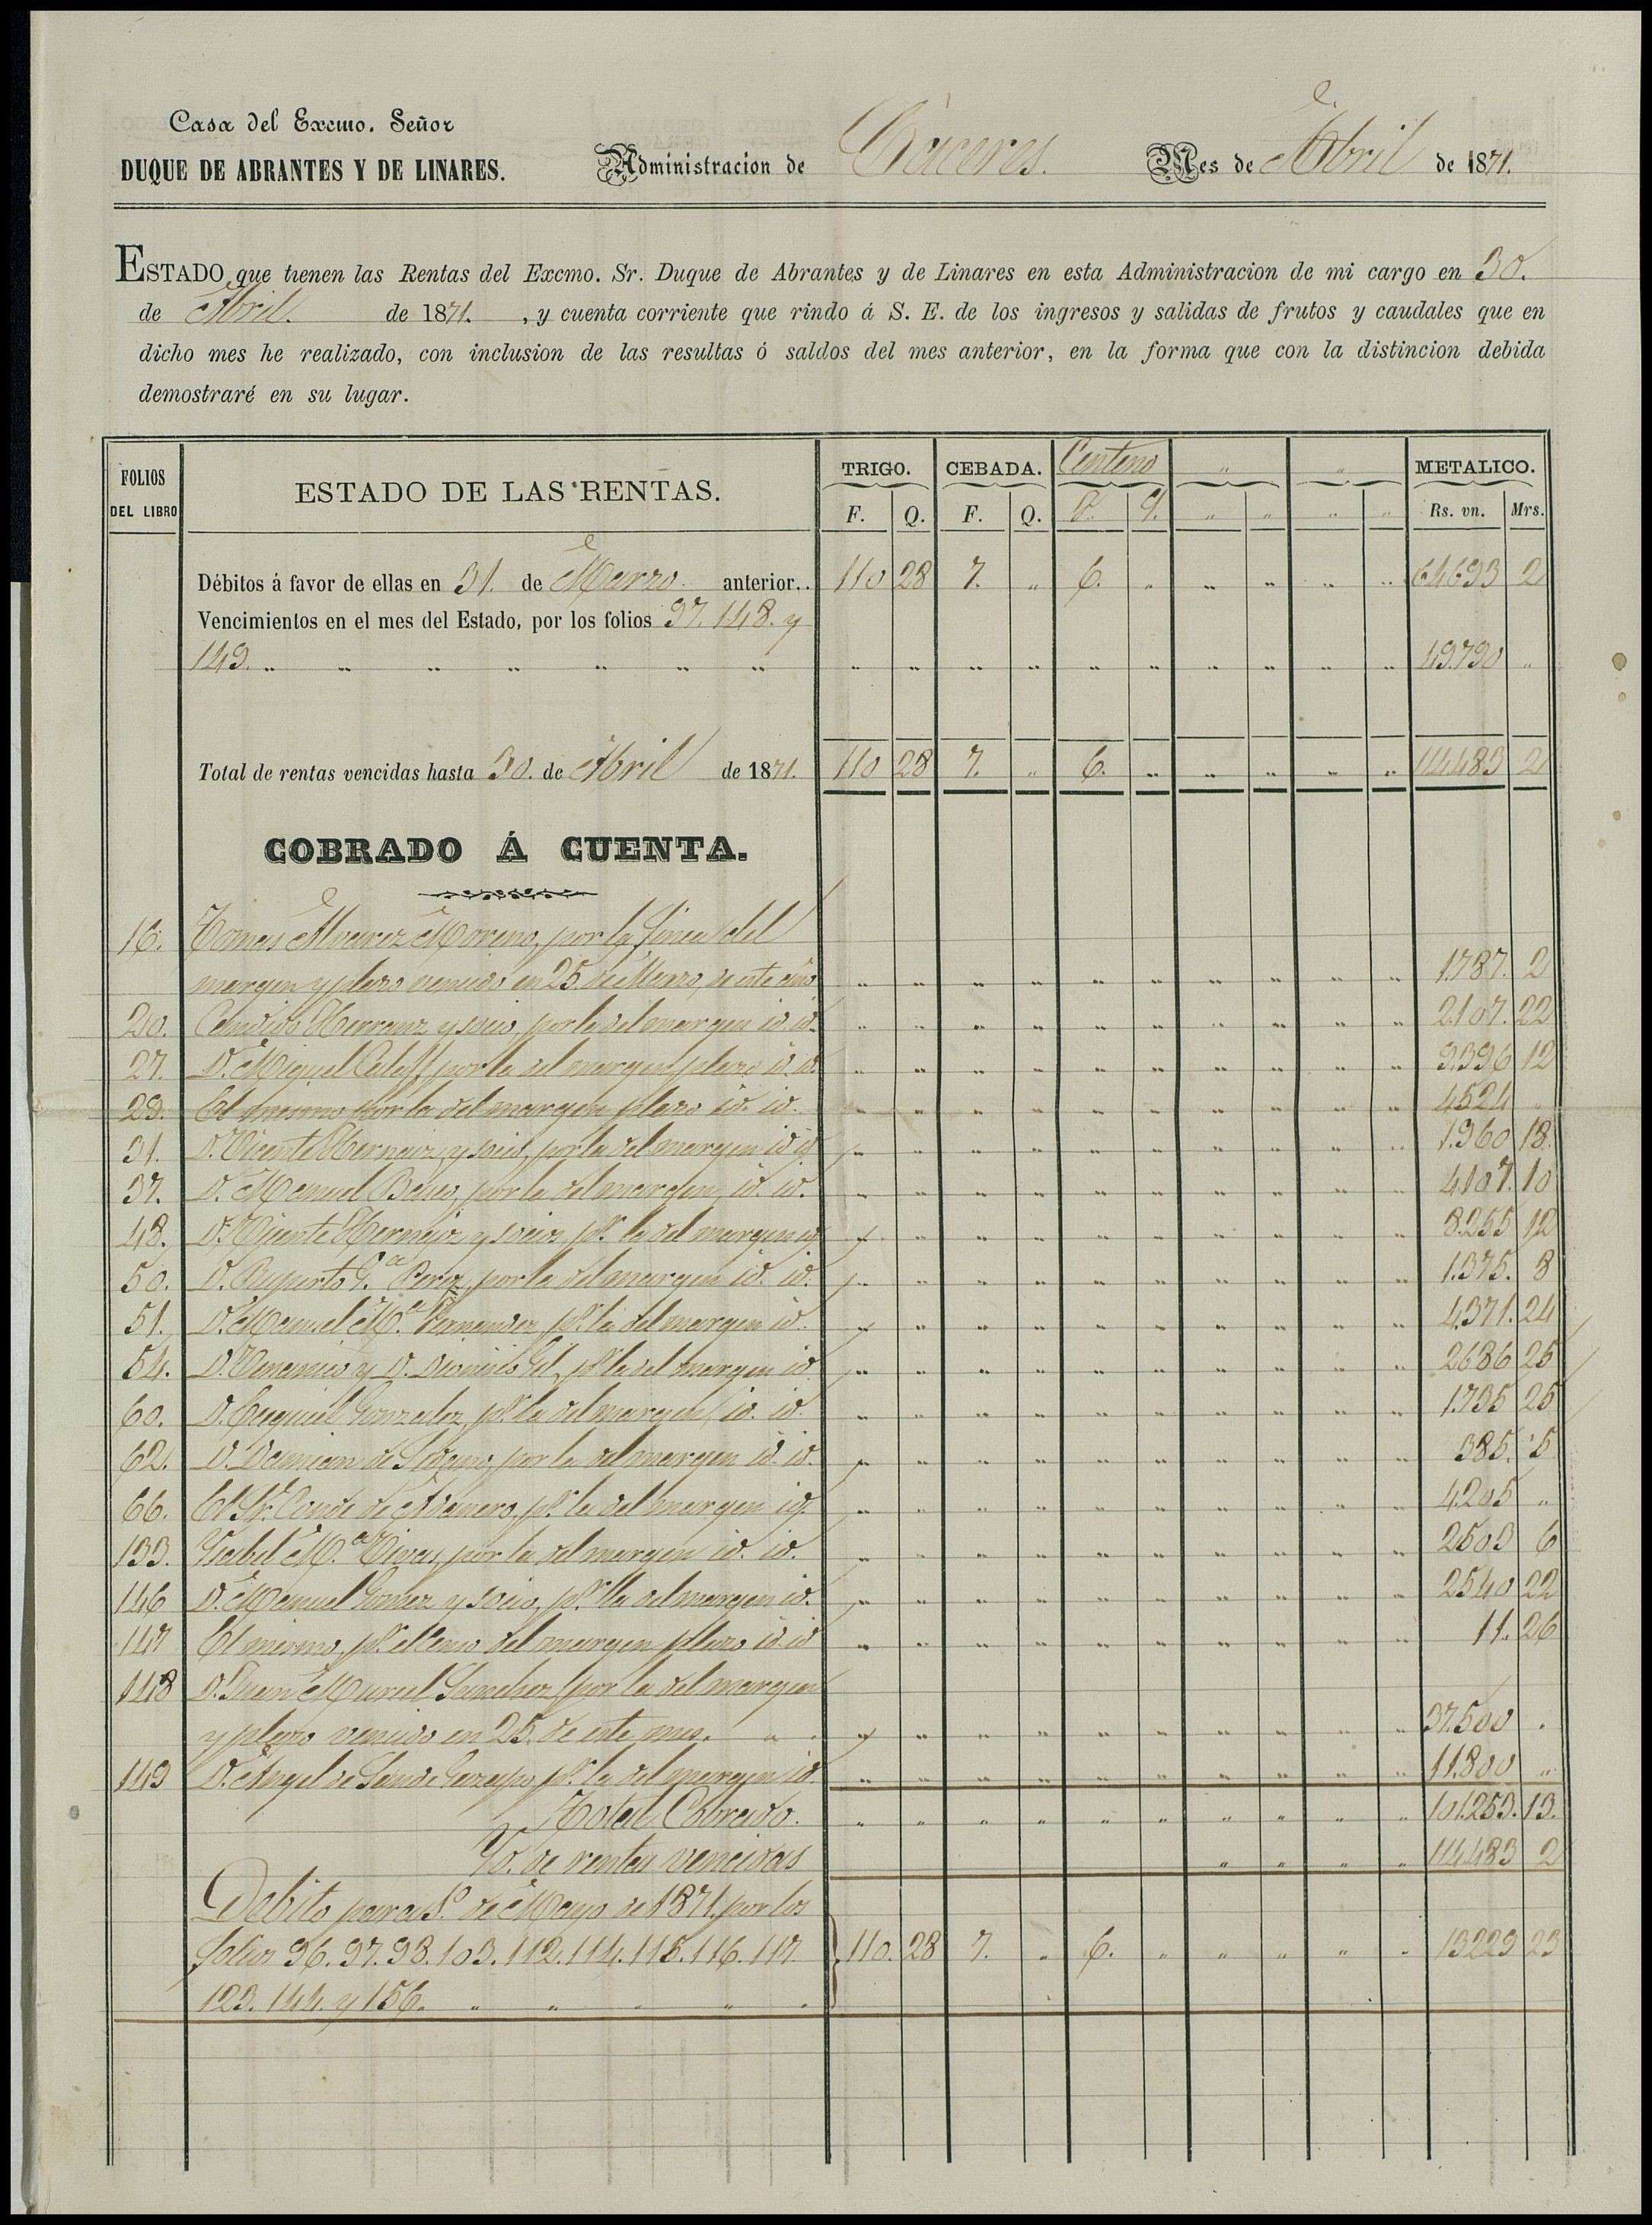 Casa del Excmo. Señor
DUQUE DE ABRANTES Y DE LINARES.
Administracion de Cáceres.
Mes de Abril de 1871.
ESTADO que tienen las Rentas del Excmo. Sr. Duque de Abrantes y de Linares en esta Administracion de mi cargo en 30.
de Abril. de 1871. , y cuenta corriente que rindo á S. E. de los ingresos y salidas de frutos y caudales que en
dicho mes he realizado, con inclusion de las resultas ó saldos del mes anterior, en la forma que con la distincion debida
demostraré en su lugar.
FOLIOS DEL LIBRO ESTADO DE LAS RENTAS. TRIGO. CEBADA. Centeno „ „ METALICO.
F. Q. F. Q. F. Q. „ „ „ „ Rs. vn. Mrs.
Débitos á favor de ellas en 31. de Marzo. anterior.. 110 28 7. „ 6. „ „ „ „ „ 64693 2
Vencimientos en el mes del Estado, por los folios 97. 148. y
149. „ „ „ „ „ „ „ „ „ „ „ „ „ „ „ „ „ 49.790 „
Total de rentas vencidas hasta 30. de Abril de 1871. 110 28 7. „ 6. „ „ „ „ „ 114483 2
COBRADO Á CUENTA.
16. Tomas Alvarez Moreno, por la finca del
margen y plazo vencido en 25. de Marzo, de este año „ „ „ „ „ „ „ „ „ „ 1.787. 2
20. Candido Herranz y socio, por la del margen id. id. „ „ „ „ „ „ „ „ „ „ 2.107. 22
27. D. Miguel por la del margen plazo id. id. „ „ „ „ „ „ „ „ „ „ 9.396 12
29. El mismo por la del margen plazo id. id. „ „ „ „ „ „ „ „ „ „ 4524 „
31. D. Vicente Hernaiz y socio, por la del margen id. id. „ „ „ „ „ „ „ „ „ „ 1.960 18.
37. D. Manuel por la del margen, id. id. „ „ „ „ „ „ „ „ „ „ 4107. 10
48. D. Vicente Hernaiz y socio, pr. la del margen id. „ „ „ „ „ „ „ „ „ „ 8.255 12
50. D. Ruperto G.ª Perez, por la del margen id. id. „ „ „ „ „ „ „ „ „ „ 1.375. 8
51. D. Manuel M.ª Fernandez, pr. la del margen id. „ „ „ „ „ „ „ „ „ „ 4.371. 24
54. D. Venancio y D. Dionisio Gil, pr. la del margen id. „ „ „ „ „ „ „ „ „ „ 2686 25
60. D. Ezequiel Gonzalez, pr. la del margen, id. id. „ „ „ „ „ „ „ „ „ „ 1.735 25
62. D. Damian de por la del margen id. id. „ „ „ „ „ „ „ „ „ „ 385. 5
66. El Sr. Conde de Adanero, pr. la del margen id. „ „ „ „ „ „ „ „ „ „ 4.205 „
133. Ysabel M.ª Vivas, por la del margen id. id. „ „ „ „ „ „ „ „ „ „ 2503 6
146 D. Manuel Gomez y socio, pr. la del margen id. „ „ „ „ „ „ „ „ „ „ 2540 22
147 El mismo, pr. el censo del margen plazo id. id. „ „ „ „ „ „ „ „ „ „ 11. 26
148 D. Juan Muriel Sanchez, por la del margen
y plazo vencido en 25. de este mes. „ „ „ „ „ „ „ „ „ „ „ „ 37.500 „
149 D. Angel de Sande pr. la del margen id. „ „ „ „ „ „ „ „ „ „ 11.800 „
Total Cobrado. „ „ „ „ „ „ „ „ „ „ 101.253. 13.
Yd. de rentas vencidas „ „ „ „ 114483 2
Debito para 1.º de Mayo de 1871. por los
folios 96. 97. 98. 103. 112. 114. 115. 116. 117. 110. 28 7. „ 6. „ „ „ „ „ 13229 23
123. 144. y 156. „ „ „ „ „